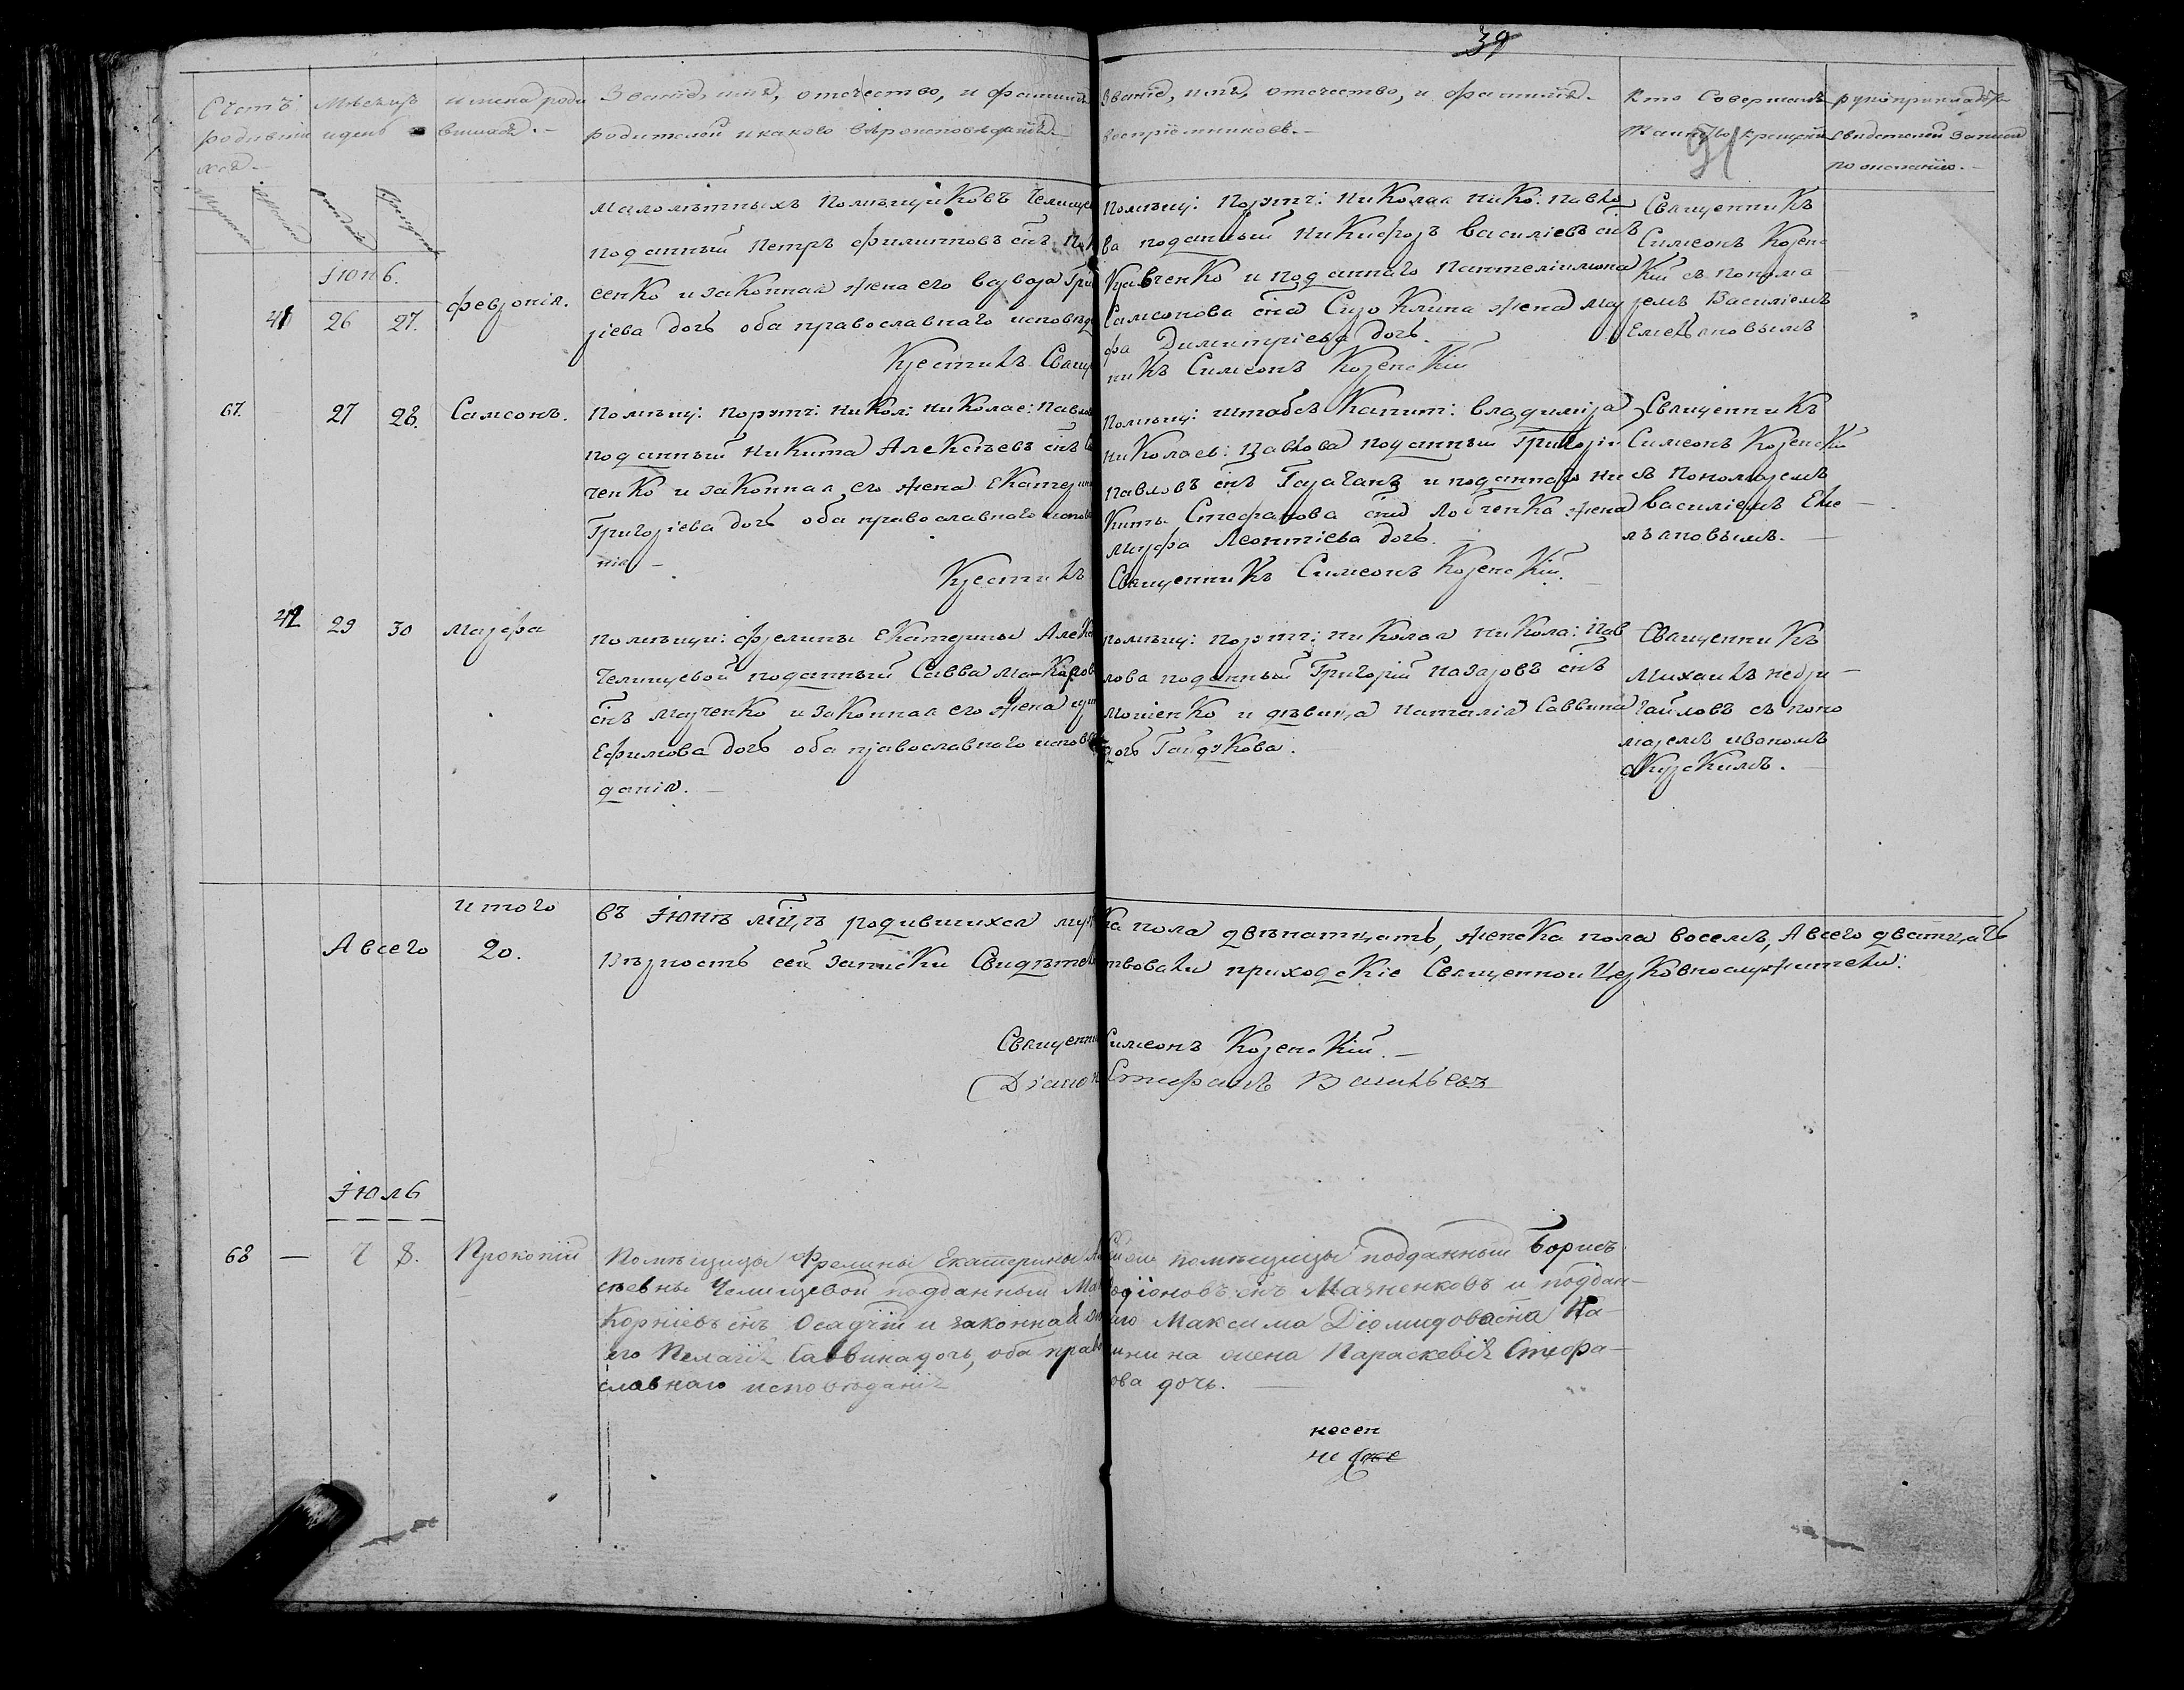 39
91
Счетъ родившихся
Мѣсяцъ и день
имена родившихся.
Званіе, имя, отечество, и фамилія
родителей и какого вѣроисповѣданія.
Званіе, имя, отечество, и фамилія
воспріемниковъ.
Кто Совершалъ
Таинство крещенія
рукоприкладство
свидетелей записи
по желанію.
Іюнь.
41 26 27. Февронія.
малолѣтныхъ помѣщиковъ Челище
подданный Петръ Филипповъ снъ
сенко и законная жена его Варвара Гри
рієва дочь оба православнаго исповѣд
Крестилъ Свящ
помѣщ: порутч: Николая Нико: Павло
ва подданный Никифоръ Василіевъ снъ
Кравченко и подданнаго Пантелиимона
Самсонова сна Сизо жена Мар
фа Димитріева дочь.
никъ Симеонъ Козенскій
Священникъ
Симеонъ Козенс
кій съ понома
ремъ Василіемъ
Емельяновымъ
67. 27 28. Самсонъ.
Помѣщ: порутч: Никол: Николае: Павлов
подданный Никита Алексѣевъ снъ
ченко и законная его жена Екатерин
Григоріева дочь оба православного испов
нія
Крестилъ
Помѣщ: штабсъ Капит: Владиміра
Николаев: Павлова подданный Григорій
Павловъ снъ Гарачанъ и подданнаго Ни
киты Стефанова сна Лобченка жена
Марфа Леонтіева дочь.
Священникъ Симеонъ Козенскій.
Священникъ
Симеонъ Козенскій
съ пономаремъ
Василіемъ Еме
льяновымъ.
42 29 30 Марфа
помѣщи: Фрелины Екатерины Алек
Челищевой подданный Савва Макаров
снъ Марченко и законная его жена
Ефимова дочь оба православного исповѣ
данія.
помѣщ: порутч: Николая Никола: Пав
лова подданный Григорій Назаровъ снъ
Мошенко и дѣвица Наталія Саввина
дочь Гайдукова.
Священникъ
Михаилъ
гайловъ съ поно
маремъ Иваномъ
итого въ Іюнѣ мцѣ родившихся мужска пола двѣнатцать, женска пола восемь, А всего дватцать
А всего 20. Вѣрность сей записки Свидѣтельствовали приходскіе Священно и Церковнослужители:
Священни Симеонъ Козенскій.
Діакон Стефанъ Васильевъ
Іюль
68 — 7 8. Прокопій
Помѣщицы Фрелины Екатерины Але
сѣевны Челищевой подданный Ма
Корніевъ снъ Осадчій и законная же
его Пелагія Саввина дочь, оба право
славнаго исповѣданія
помѣщицы подданный Борисъ
Родіоновъ снъ Мазненковъ и поддан
наго Максима Діомидова сна Ка
жена Параскевія Стефа
ова дочь.
несен
не